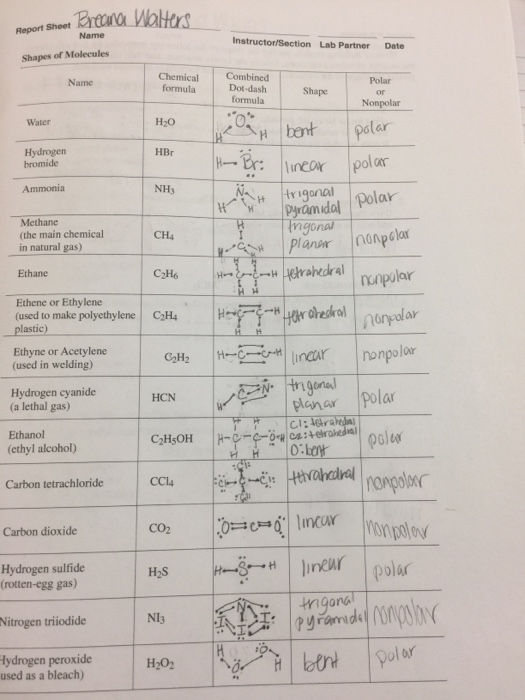 Report Sheet Breana Walters
Name
Instructor/Section Lab Partner Date
Shapes of Molecules
Name Chemical formula Combined Dot-dash formula Shape Polar or Nonpolar
Water H₂O H O H bent polar
Hydrogen bromide HBr H–Br: linear polar
Ammonia NH₃ H N H H trigonal pyramidal polar
Methane (the main chemical in natural gas) CH₄ H H C H H trigonal planar nonpolar
Ethane C₂H₆ H H H–C–C–H H H tetrahedral nonpolar
Ethene or Ethylene (used to make polyethylene plastic) C₂H₄ H–C C–H tetrahedral nonpolar
Ethyne or Acetylene (used in welding) C₂H₂ H–C C–H linear nonpolar
Hydrogen cyanide (a lethal gas) HCN H C N: trigonal planar polar
Ethanol (ethyl alcohol) C₂H₅OH H H H–C–C–O–H H H C1: tetrahedral C2: tetrahedral O: bent polar
Carbon tetrachloride CCl₄ Cl Cl C Cl Cl tetrahedral nonpolar
Carbon dioxide CO₂ O=C=O linear nonpolar
Hydrogen sulfide (rotten-egg gas) H₂S H–S–H linear polar
Nitrogen triiodide NI₃ N I I I trigonal pyramidal nonpolar
Hydrogen peroxide used as a bleach) H₂O₂ H O O H bent polar